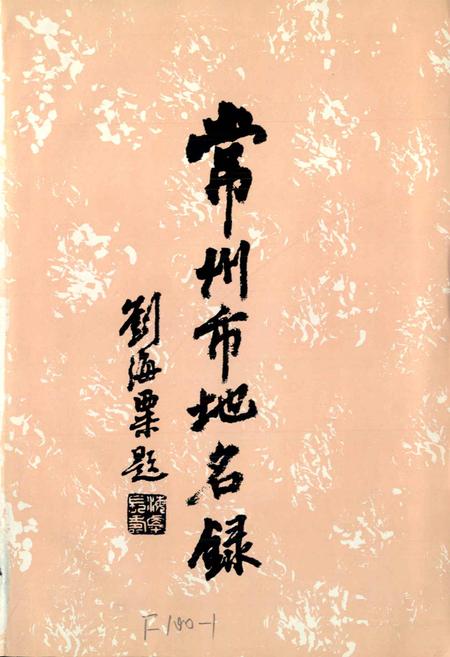 常州市地名录
劉海粟題
F-100-1